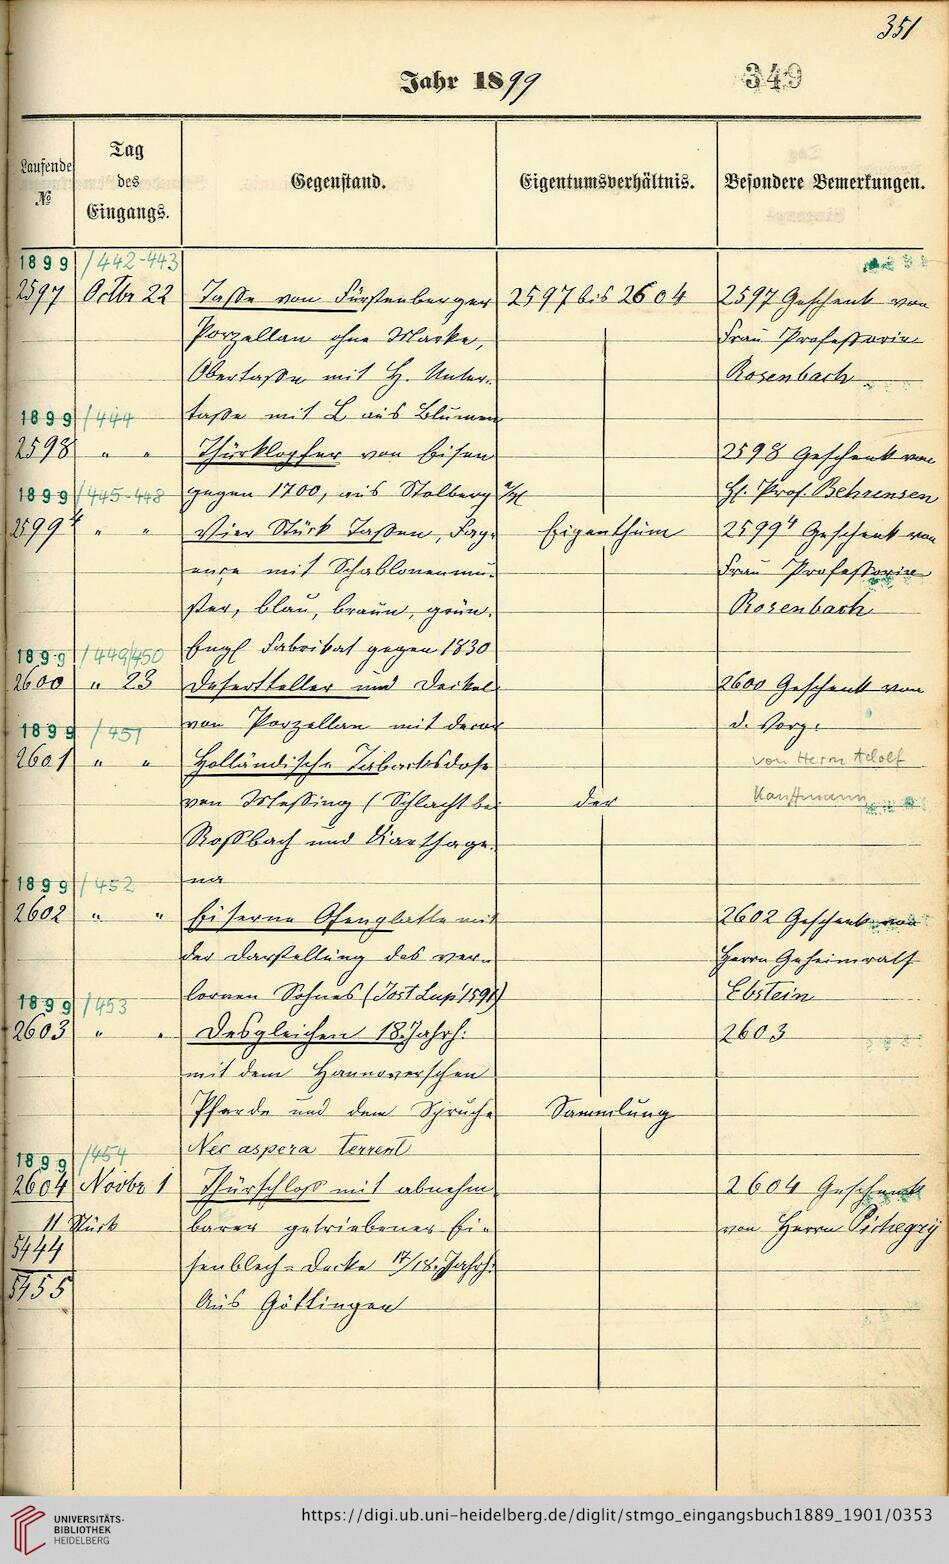 351
Jahr 1899
349
Laufende №
Tag des Eingangs.
Gegenstand.
Eigentumsverhältnis.
Besondere Bemerkungen.
1899 /442-443
2597 Octbr 22 Tasse von Fürstenberger 2597 bis 2604 2597 Geschenk von
Porzellan ohne Marke, Frau Professorin
Obertasse mit H. Unter- Rosenbach
1899 /444 tasse mit L aus Blumen
2598 " " Thürklopfer von Eisen 2598 Geschenk von
1899 /445-448 gegen 1700, aus Stolberg a/H H. Prof. Behrensen
2599⁴ " " Vier Stück Tassen, Fay- Eigenthum 2599⁴ Geschenk von
ence mit Schablonenmu- Frau Professorin
ster, blau, braun, grün. Rosenbach
1899 /449/450 Engl Fabrikat gegen 1830
2600 " 23 Desertteller und Deckel 2600 Geschenk von
1899 /451 von Porzellan mit decor d. Vorg.
2601 " " Holländische Tabacksdose von Herrn Adolf
von Messing (Schlacht bei der Kauffmann
Rossbach und Karthage-
1899 /452 na
2602 " " Eiserne Ofenplatte mit 2602 Geschenk von
der Darstellung des ver- Herrn Geheimrath
1899 /453 lornen Sohnes (Jost Lup 1591) Ebstein
2603 " " Desgleichen 18. Jahrh: 2603
mit dem Hannoverschen
Pferde und dem Spruche Sammlung
1899 /454 Nec aspera terrent
2604 Novbr 1 Thürschloss mit abnehm- 2604 Geschenk
11 Stück barer getriebener Ei- von Herrn
5444 senblech-Decke 17/18. Jahrh:
5455 Aus Göttingen
UNIVERSITÄTS-
BIBLIOTHEK
HEIDELBERG
https://digi.ub.uni-heidelberg.de/diglit/stmgo_eingangsbuch1889_1901/0353